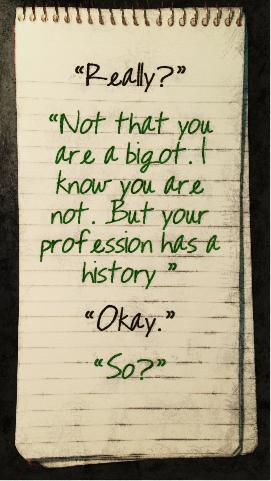 “Really?”
“Not that you
are a bigot. I
know you are
not. But your
profession has a
history ”
“Okay.”
“So?”